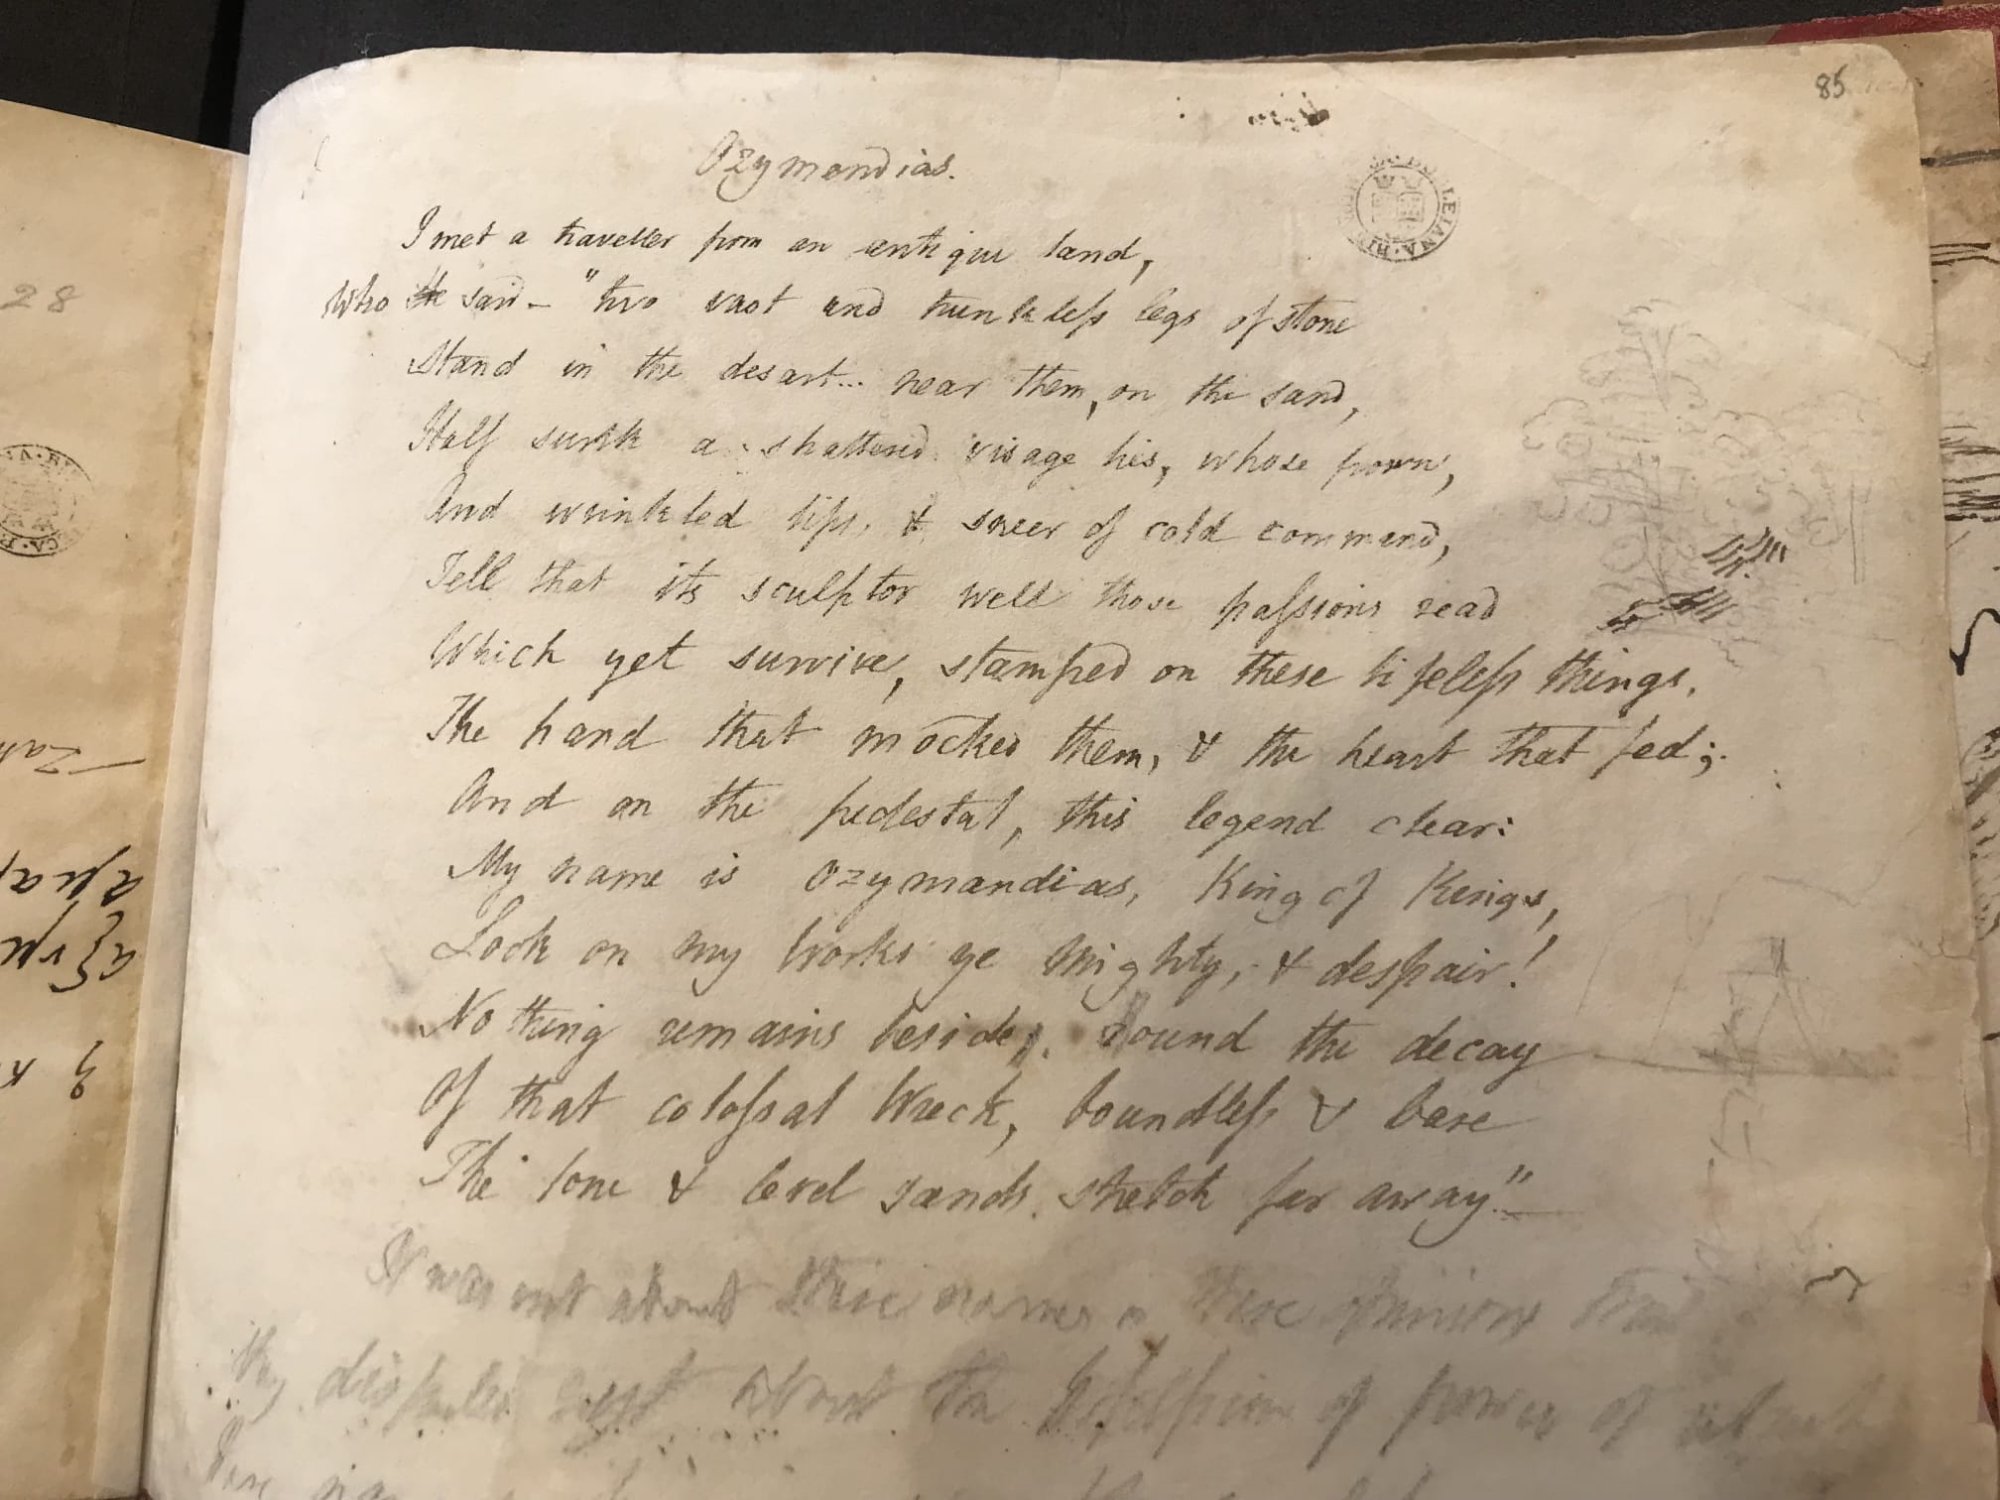 85
Ozymandias.
I met a traveller from an antique land,
Who said — "two vast and trunkless legs of stone
Stand in the desart... near them, on the sand,
Half sunk a shattered visage lies, whose frown,
And wrinkled lips, & sneer of cold command,
Tell that its sculptor well those passions read
Which yet survive, stamped on these lifeless things,
The hand that mocked them, & the heart that fed;
And on the pedestal, this legend clear:
My name is Ozymandias, King of Kings,
Look on my works ye Mighty, & despair!
No thing remains beside. round the decay
Of that colossal Wreck, boundless & bare
The lone & level sands stretch far away."—
It was not about these names or these opinions
they disputed but about the possession of power
28